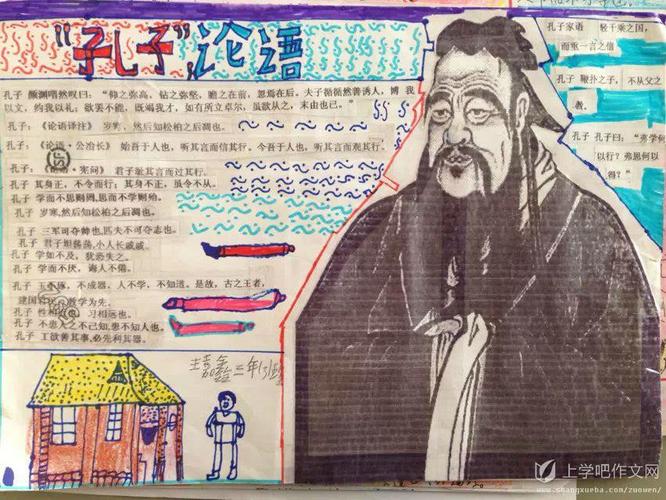 "孔子"论语
孔子 颜渊喟然叹曰："仰之弥高，钻之弥坚，瞻之在前，忽焉在后。夫子循循然善诱人，博 我
以文，约我以礼，欲罢不能，既竭我才，如有所立卓尔，虽欲从之，末由也已。"
孔子：《论语译注》 岁寒，然后知松柏之后凋也。
孔子：《论语·公冶长》 始吾于人也，听其言而信其行。今吾于人也，听其言而观其行。
孔子：《论语·宪问》 君子耻其言而过其行。
孔子 其身正，不令而行；其身不正，虽令不从。
孔子 学而不思则罔，思而不学则殆。
孔子 岁寒，然后知松柏之后凋也。
孔子 三军可夺帅也，匹夫不可夺志也。
孔子 君子坦荡荡，小人长戚戚。
孔子 学如不及，犹恐失之。
孔子 学而不厌，诲人不倦。
孔子 玉不琢，不成器，人不学，不知道。是故，古之王者，
建国君民，教学为先。
孔子 性相近也，习相远也。
孔子 不患人之不己知，患不知人也。
孔子 工欲善其事，必先利其器。
孔子家语 轻千乘之国，
而重一言之信
孔子 鞭扑之子，不从父之
教。
孔子 孔子曰："弗学何
以行？弗思何以
得？"
三年(3)班
上学吧作文网
www.shangxueba.com/zuowen/